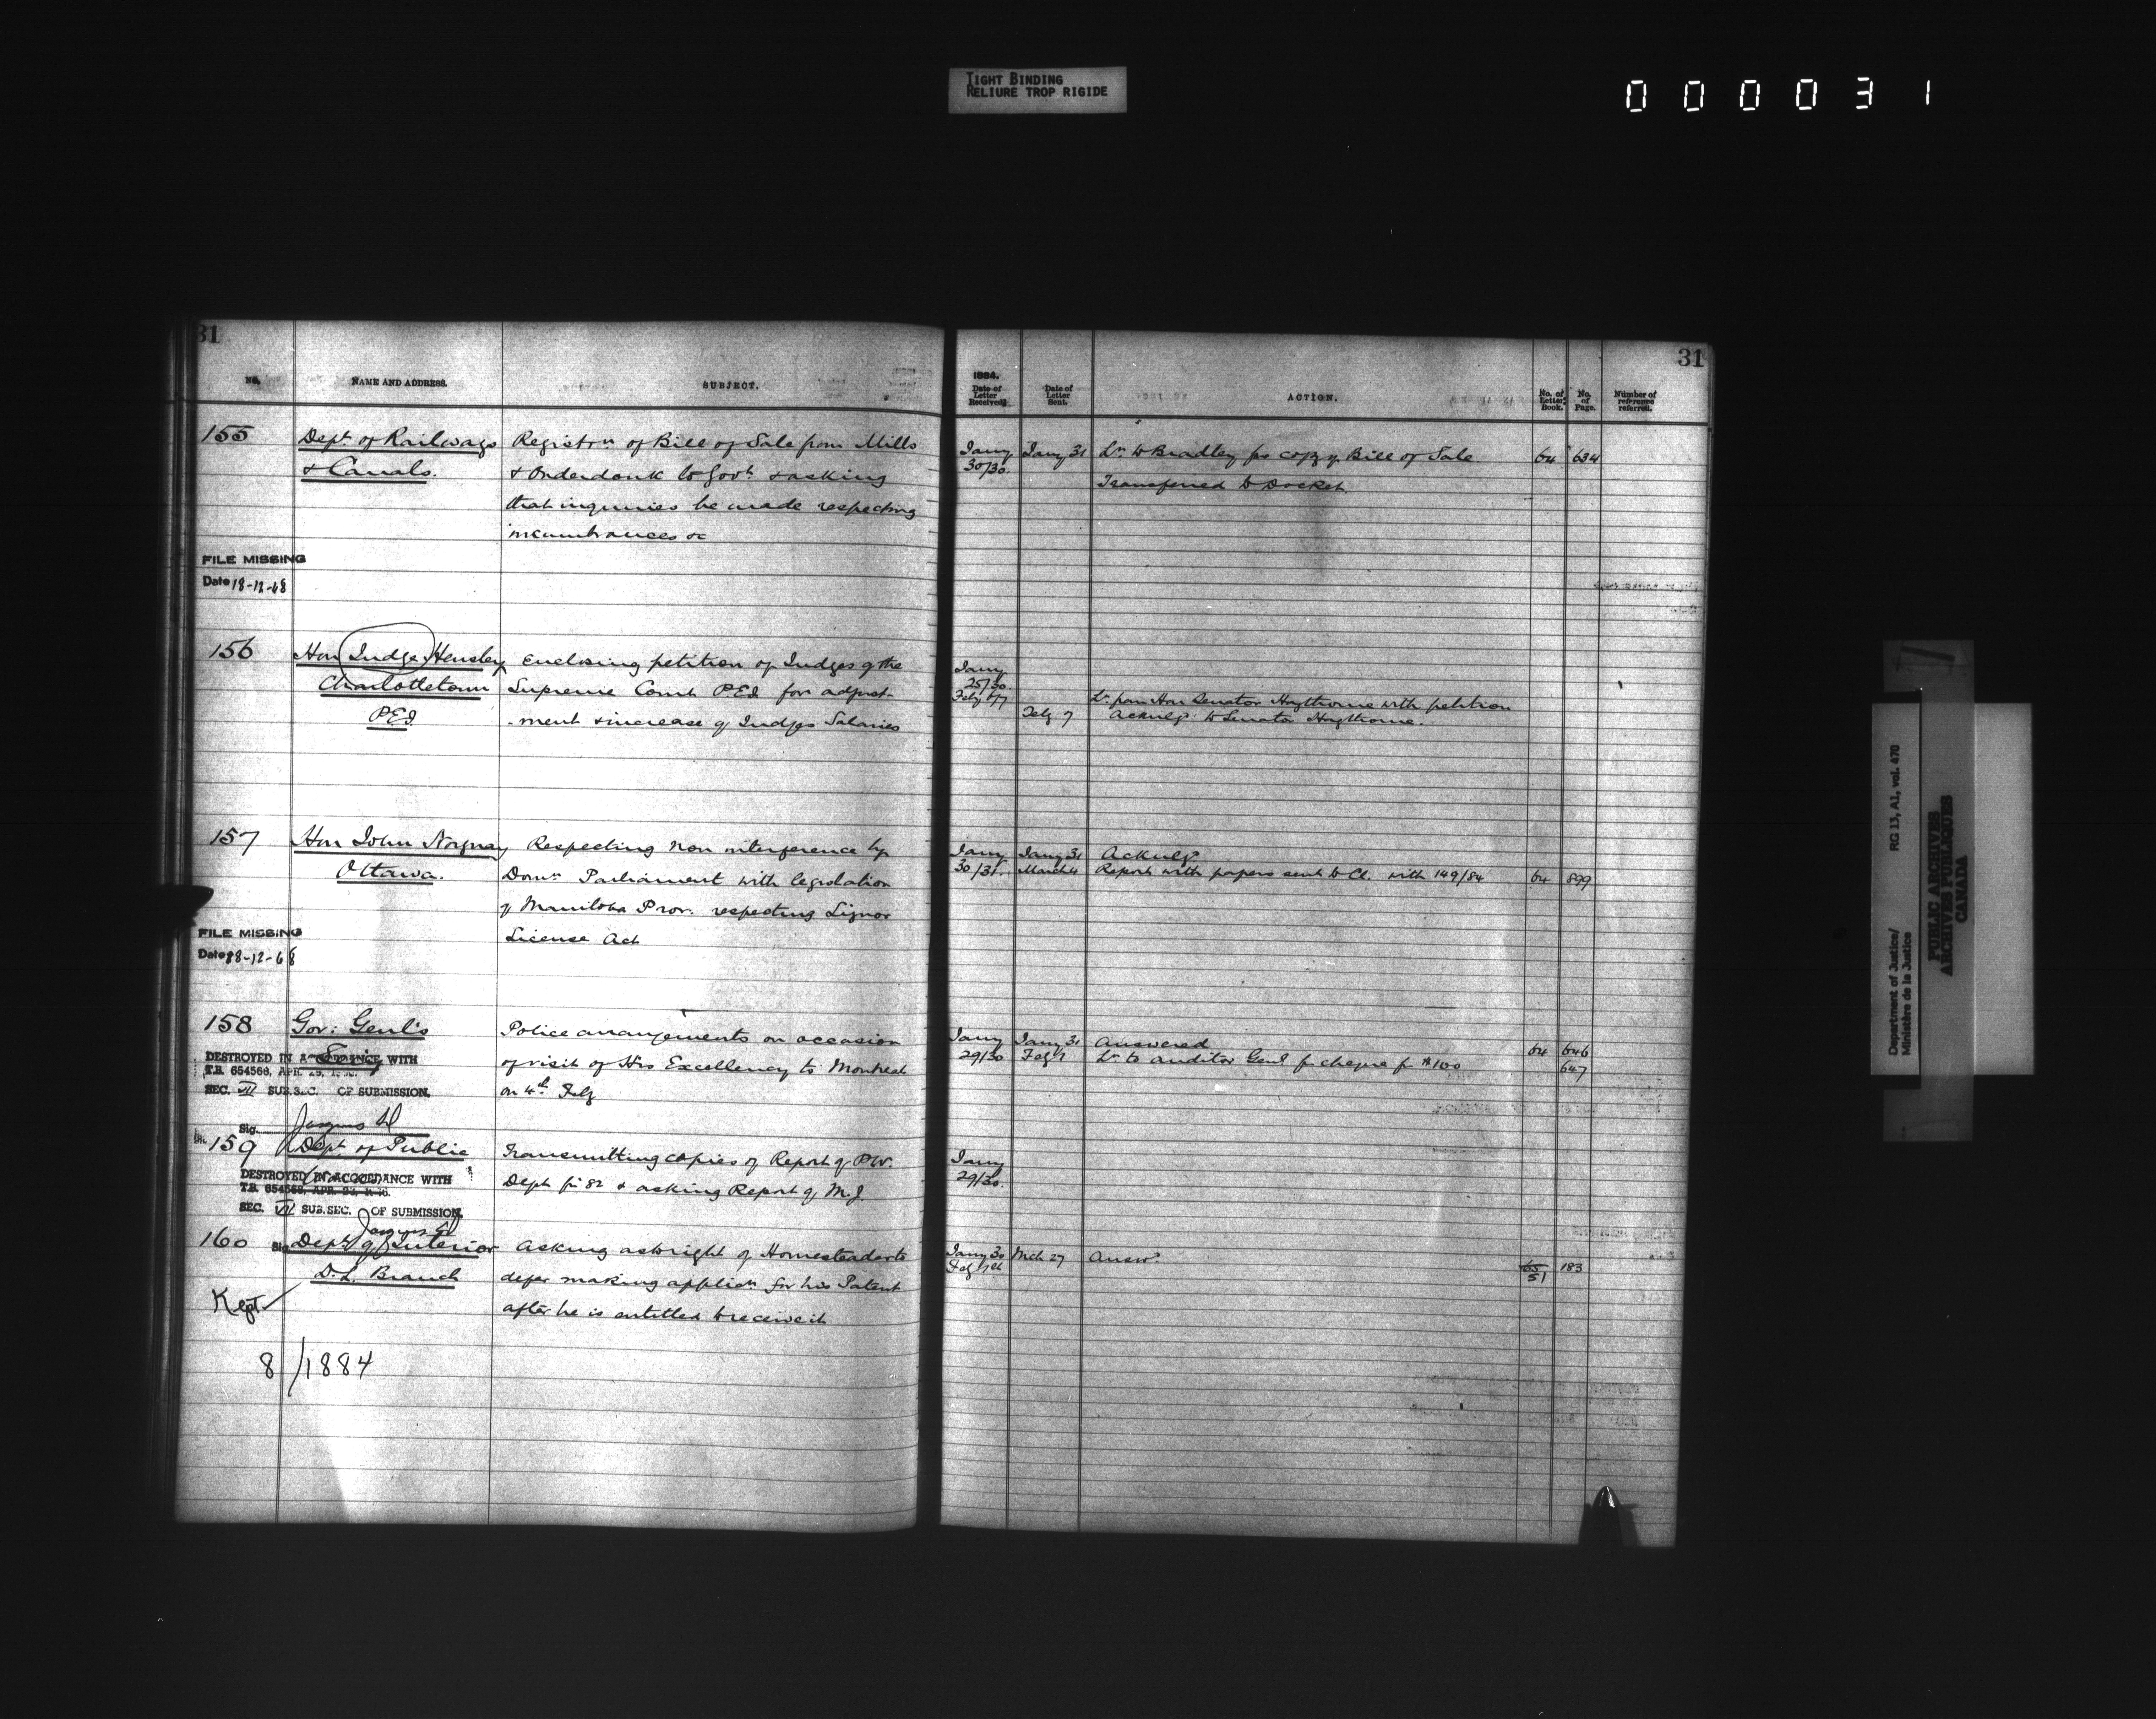 TIGHT BINDING
RELIURE TROP RIGIDE
000031
31
NO.
NAME AND ADDRESS.
SUBJECT.
155
Dept. of Railways
& Canals.
Registrn of Bill of Sale from Mills
& Onderdonk to Govt. & asking
that inquiries be made respecting
incumbrances &c
FILE MISSING
Date 18-12-68
156
Hon Judge Hensley
Charlottetown
P.E.I.
Enclosing petition of Judges of the
Supreme Court P.E.I. for adjust-
-ment & increase of Judges Salaries
157
Hon John Norquay
Ottawa.
Respecting non interference by
Domn Parliament with legislation
of Manitoba Prov. respecting Liquor
License Act
FILE MISSING
Date 18-12-68
158
Gov: Genl's
Police arrangements on occasion
of visit of His Excellency to Montreal
on 4th Feby
DESTROYED IN ACCORDANCE WITH
T.B. 654568, APR.
SEC. VII SUB.SEC. OF SUBMISSION.
Sig.
159
Dept. of Public
Transmitting copies of Report of P.W.
Dept for 82 & asking Report of M.J.
DESTROYED IN ACCORDANCE WITH
T.B. 654568, APR.
SEC. VII SUB.SEC. OF SUBMISSION.
Sig.
160
Dept. of Interior
D.L. Branch
Asking as to right of Homesteader to
defer making applicn for his Patent
after he is entitled to receive it
Kept
8/1884
31
1884.
Date of Letter Received.
Date of Letter Sent.
ACTION.
No. of Letter Book.
No. of Page.
Number of reference referred.
Jany 30/30.
Jany 31
Lr. to Bradley for copy of Bill of Sale
64
634
Transferred to Docket
Jany 25/30.
Lr. from Hon Senator Haythorne with petition
Feby 7
Acknlgd. to Senator Haythorne.
Jany 30/31.
Jany 31
Acknlgd
March 4
Report with papers sent to Cl. with 149/84
64
899
Jany 29/30
Jany 31
Answered
64
646
Feby 1
Lr. to Auditor Genl for cheque for $100
647
Jany 29/30.
Jany 30
Mch 27
Answd.
65
51
183
Department of Justice/
Ministère de la Justice
RG 13, A1, vol. 470
PUBLIC ARCHIVES
ARCHIVES PUBLIQUES
CANADA